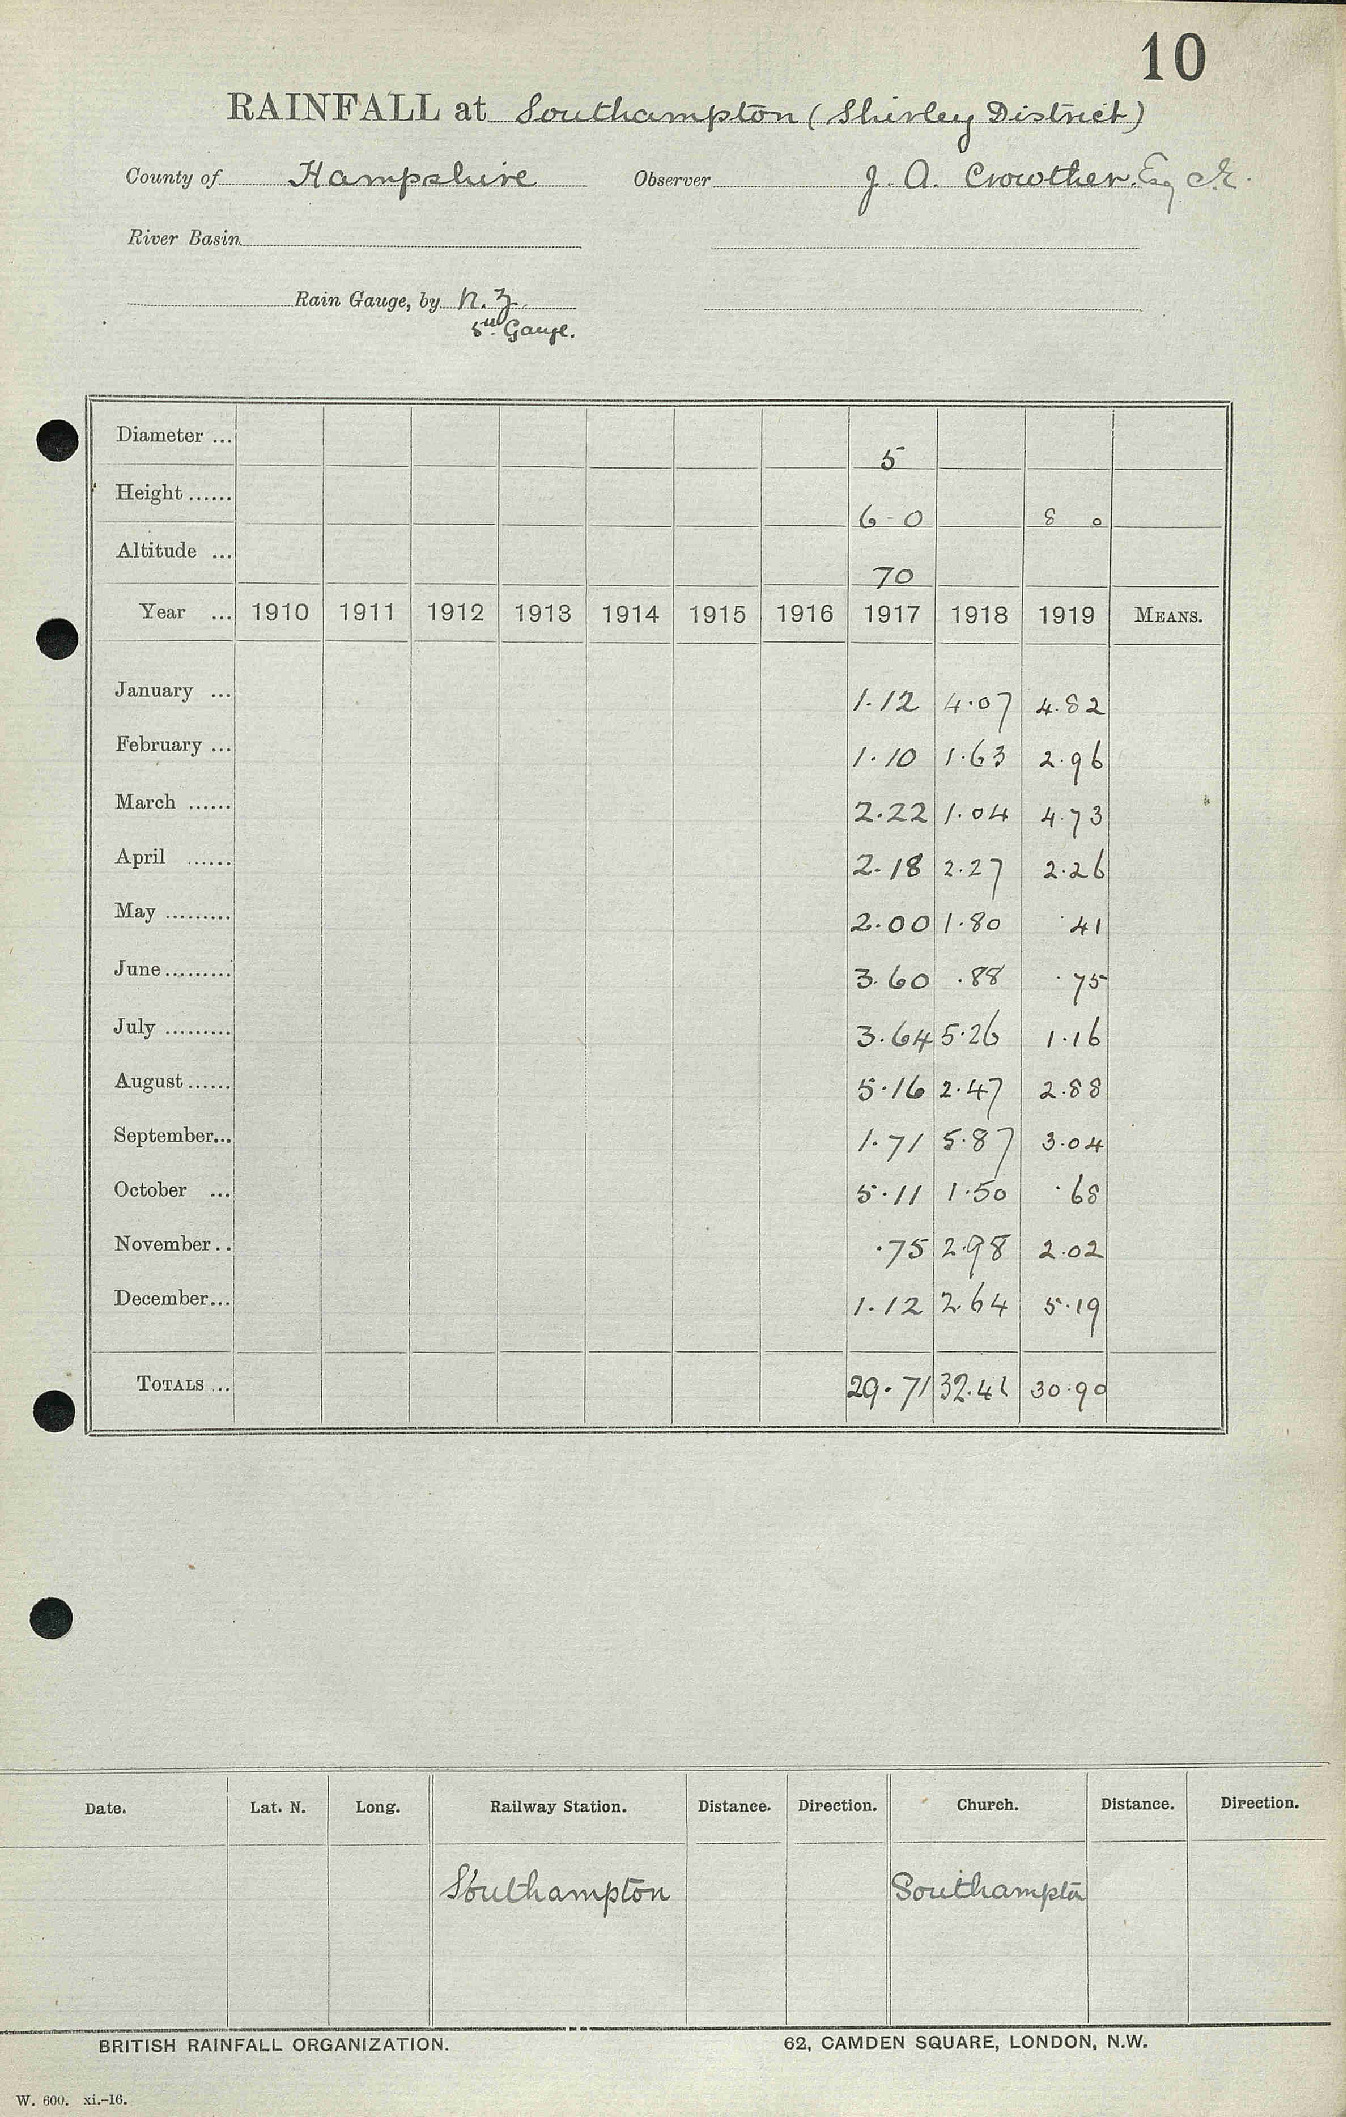 10
RAINFALL at Southampton (Shirley District)
County of Hampshire Observer J. A. Crowther. Esq C.E.
River Basin
Rain Gauge, by N. Z.
5" Gauge.
Diameter ... 5
Height ...... 6 - 0 8 0
Altitude ... 70
Year ... 1910 1911 1912 1913 1914 1915 1916 1917 1918 1919 MEANS.
January ... 1.12 4.07 4.82
February ... 1.10 1.63 2.96
March ...... 2.22 1.04 4.73
April ...... 2.18 2.27 2.26
May ......... 2.00 1.80 .41
June ......... 3.60 .88 .75
July ......... 3.64 5.26 1.16
August ...... 5.16 2.47 2.88
September... 1.71 5.87 3.04
October ... 5.11 1.50 .68
November.. .75 2.98 2.02
December... 1.12 2.64 5.19
TOTALS ... 29.71 32.41 30.90
Date. Lat. N. Long. Railway Station. Distance. Direction. Church. Distance. Direction.
Southampton Southampton
BRITISH RAINFALL ORGANIZATION. 62, CAMDEN SQUARE, LONDON, N.W.
W. 600. xi.-16.